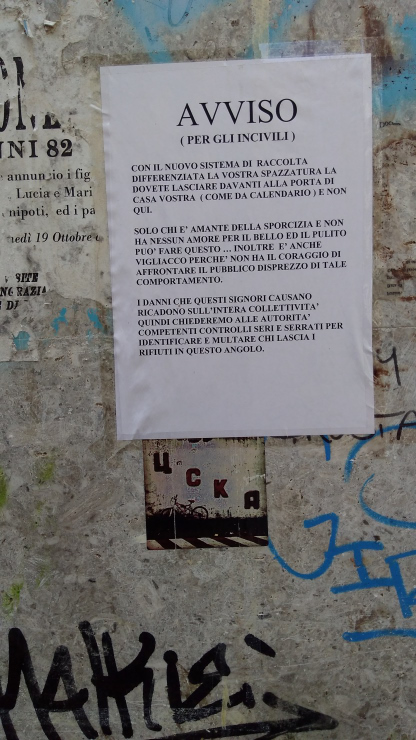 AVVISO
( PER GLI INCIVILI )
CON IL NUOVO SISTEMA DI RACCOLTA
DIFFERENZIATA LA VOSTRA SPAZZATURA LA
DOVETE LASCIARE DAVANTI ALLA PORTA DI
CASA VOSTRA ( COME DA CALENDARIO ) E NON
QUI.
SOLO CHI E' AMANTE DELLA SPORCIZIA E NON
HA NESSUN AMORE PER IL BELLO ED IL PULITO
PUO' FARE QUESTO ... INOLTRE E' ANCHE
VIGLIACCO PERCHE' NON HA IL CORAGGIO DI
AFFRONTARE IL PUBBLICO DISPREZZO DI TALE
COMPORTAMENTO.
I DANNI CHE QUESTI SIGNORI CAUSANO
RICADONO SULL'INTERA COLLETTIVITA'
QUINDI CHIEDEREMO ALLE AUTORITA'
COMPETENTI CONTROLLI SERI E SERRATI PER
IDENTIFICARE E MULTARE CHI LASCIA I
RIFIUTI IN QUESTO ANGOLO.
NNI 82
annuncio i fig
Lucia e Mari
nipoti, ed i pa
19 Ottobre
ЦСКА